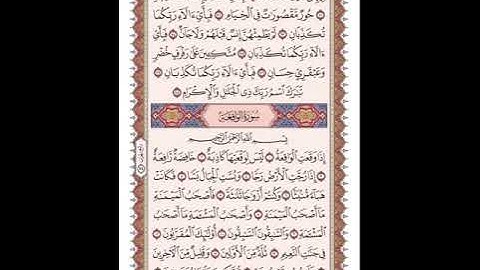 حُورٌ مَّقْصُورَٰتٌ فِي ٱلْخِيَامِ ۝ فَبِأَيِّ ءَالَآءِ رَبِّكُمَا
تُكَذِّبَانِ ۝ لَمْ يَطْمِثْهُنَّ إِنسٌ قَبْلَهُمْ وَلَا جَآنٌّ ۝ فَبِأَيِّ
ءَالَآءِ رَبِّكُمَا تُكَذِّبَانِ ۝ مُتَّكِـِٔينَ عَلَىٰ رَفْرَفٍ خُضْرٍ
وَعَبْقَرِيٍّ حِسَانٍ ۝ فَبِأَيِّ ءَالَآءِ رَبِّكُمَا تُكَذِّبَانِ ۝
تَبَٰرَكَ ٱسْمُ رَبِّكَ ذِي ٱلْجَلَٰلِ وَٱلْإِكْرَامِ ۝
سُورَةُ الوَاقِعَةِ
بِسْمِ ٱللَّهِ ٱلرَّحْمَٰنِ ٱلرَّحِيمِ
إِذَا وَقَعَتِ ٱلْوَاقِعَةُ ۝ لَيْسَ لِوَقْعَتِهَا كَاذِبَةٌ ۝ خَافِضَةٌ رَّافِعَةٌ
۝ إِذَا رُجَّتِ ٱلْأَرْضُ رَجًّا ۝ وَبُسَّتِ ٱلْجِبَالُ بَسًّا ۝ فَكَانَتْ
هَبَآءً مُّنۢبَثًّا ۝ وَكُنتُمْ أَزْوَٰجًا ثَلَٰثَةً ۝ فَأَصْحَٰبُ ٱلْمَيْمَنَةِ
مَآ أَصْحَٰبُ ٱلْمَيْمَنَةِ ۝ وَأَصْحَٰبُ ٱلْمَشْـَٔمَةِ مَآ أَصْحَٰبُ
ٱلْمَشْـَٔمَةِ ۝ وَٱلسَّٰبِقُونَ ٱلسَّٰبِقُونَ ۝ أُو۟لَٰٓئِكَ ٱلْمُقَرَّبُونَ ۝
فِي جَنَّٰتِ ٱلنَّعِيمِ ۝ ثُلَّةٌ مِّنَ ٱلْأَوَّلِينَ ۝ وَقَلِيلٌ مِّنَ ٱلْءَاخِرِينَ